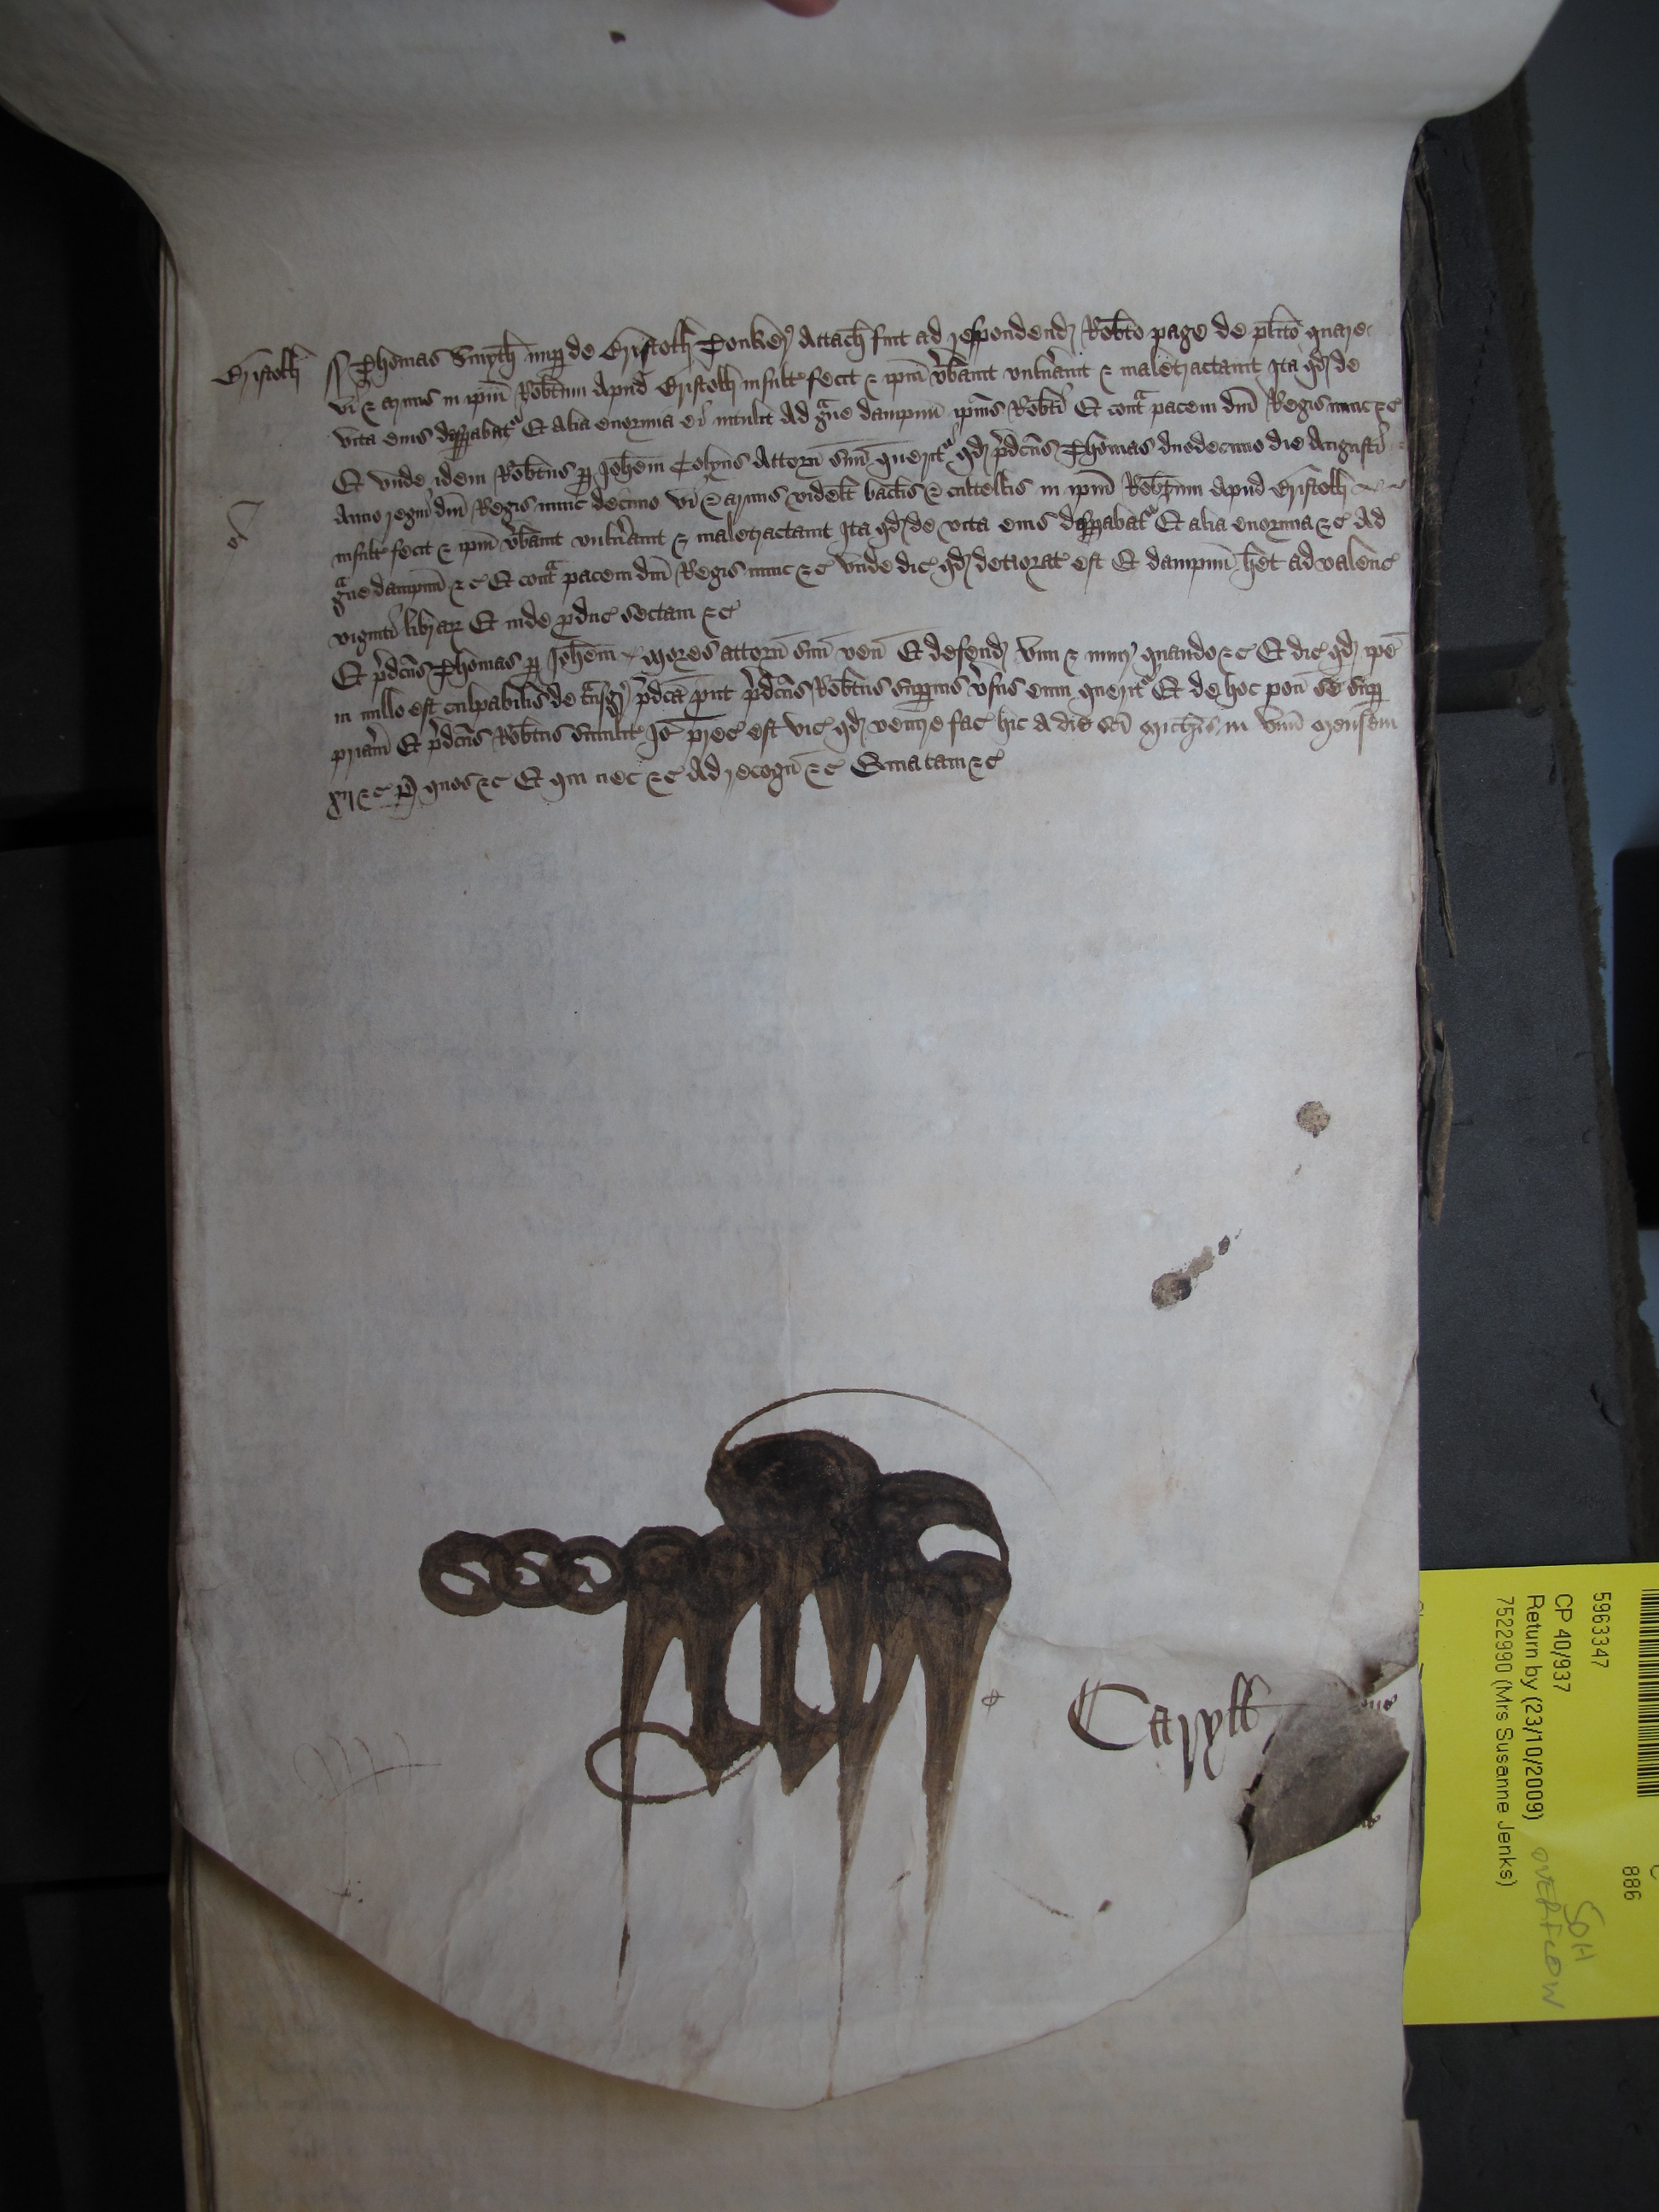 Bristoll ss Thomas Smyth nup de Bristoll Tonker Attach fuit ad respondend Robto Page de plito quare
vi & armis in ipm Robtum apud Bristoll insult fecit & ipm vberavit vulnavit & maletractavit Ita qd de
vita eius despabat Et alia enormia ei intulit Ad gave dampnum ipius Robti Et cont pacem dni Regis nunc &c
Et unde idem Robtus p Johem Colyns Attorn suu querit qd pdcus Thomas duodecimo die Augusti
Anno regni dni Regis nunc decimo vi & armis videlt baclis & cultellis in ipm Robtum apud Bristoll
insult fecit & ipm vberavit vulnavit & maletractavit Ita qd de vita eius despabat Et alia enormia &c Ad
gave dampnum &c Et cont pacem dni Regis nunc &c Unde dic qd detiorat est Et dampnum het ad valenc
viginti librar Et inde pduc sectam &c
Et pdcus Thomas p Johem Mores attorn suu ven Et defend vim & iniur quando &c Et dic qd ipe
in nullo est culpabilis de tnsgr pdca put pdcus Robtus supius vsus eum querit Et de hoc pon se sup
priam Et pdcus Robtus similit Io prec est vic qd venire fac hic a die sci Michis in unu mensem
xij &c p quos &c Et qui nec &c Ad recogn &c Quia tam &c
Caryll
5963347
CP 40/937
Return by (23/10/2009)
7522990 (Mrs Susanne Jenks)
886
SOH
OVERFLOW